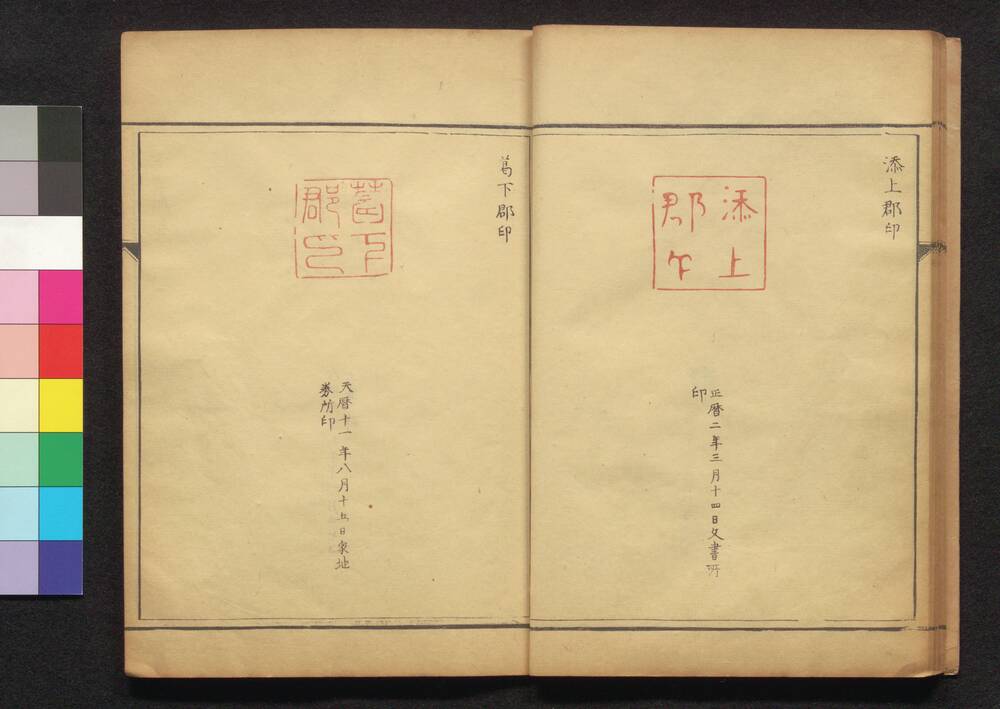 添上郡印
添上
郡印
正暦二年三月十四日文書所
印
葛下郡印
葛下
郡印
天暦十一年八月十五日家地
券所印